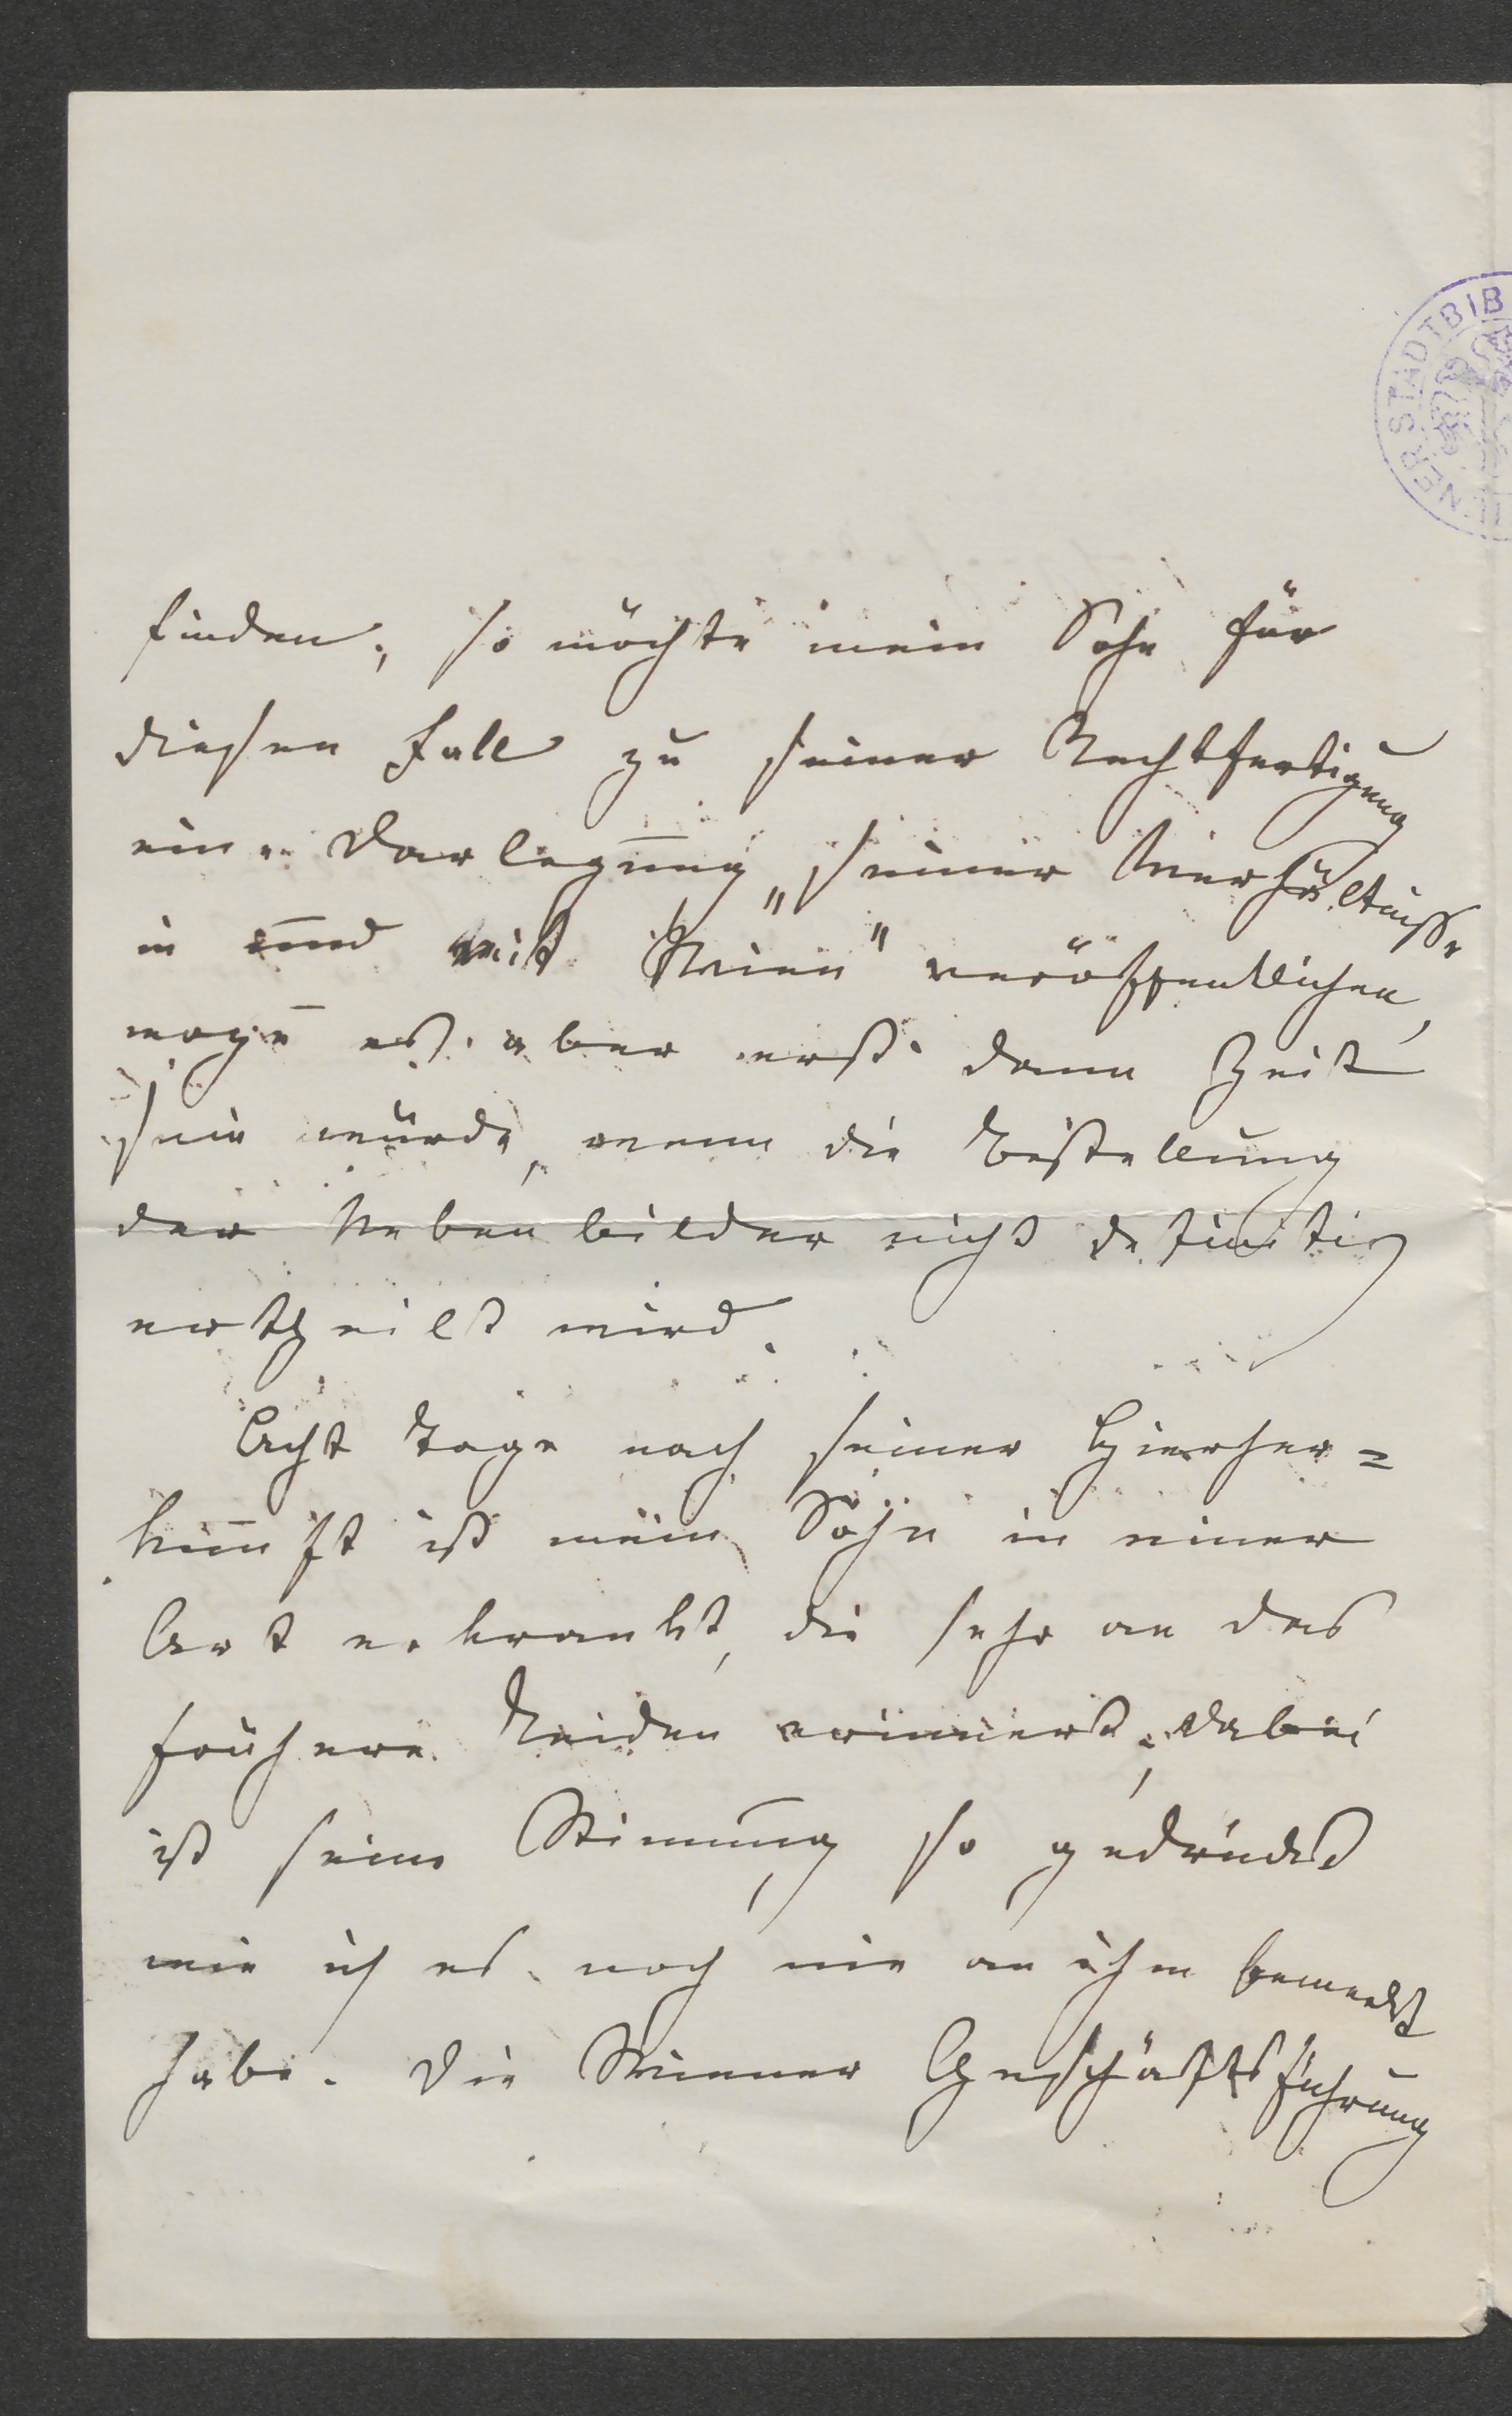 finden, so möchte mein Sohn für
diesen Fall zu seiner Rechtfertigung
eine Darlegung „seiner Verhältnisse
in und mit Wien" veröffentlichen,
wozu es aber erst dann Zeit
sein würde, wenn die Bestellung
der Nebenbilder nicht definitiv
ertheilt wird.
Acht Tage nach seiner Hierher=
kunft ist mein Sohn in einer
Art erkrankt, die sehr an das
frühere Leiden erinnert; dabei
ist seine Stimmung so gedrückt
wie ich es noch nie an ihm bemerkt
habe. Die Wiener Geschäftsführung
NER STADTBIB